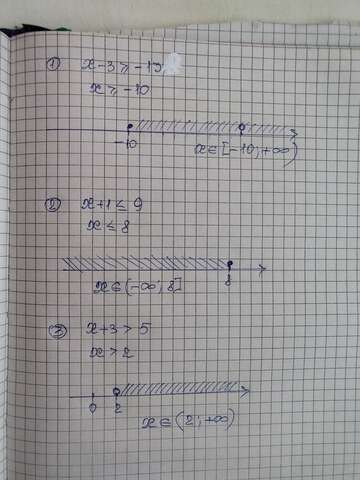 1) x-3 ≥ -13
x ≥ -10
-10
0
x∈[-10;+∞)
2) x+1 ≤ 9
x ≤ 8
8
x∈(-∞;8]
3) x+3 > 5
x > 2
0 2
x∈(2;+∞)